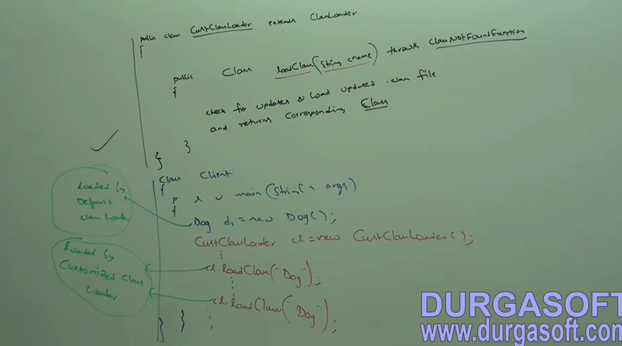 public class CustClassLoader extends ClassLoader
{
public Class loadClass(String cname) throws ClassNotFoundException
{
check for updates & load updated .class file
and returns corresponding Class
}
}
class Client
{
p s v main(String[] args)
{
Dog d1 = new Dog();
CustClassLoader cl = new CustClassLoader();
cl.loadClass("Dog");
cl.loadClass("Dog");
;
}
}
Loaded by
Default
class Loader
Loaded by
Customized Class
Loader
DURGASOFT
www.durgasoft.com